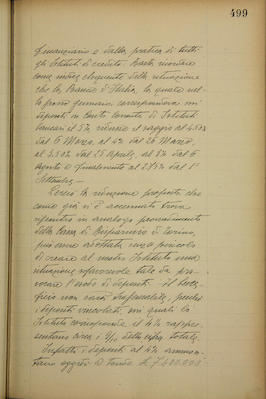 499
finanziario e dalla pratica di tutti
gli Istituti di credito. Basti ricordare
come indice eloquente della situazione
che la Banca d'Italia, la quale nel
lo scorso gennaio corrispondeva sui
depositi in conto corrente di Istituti
bancari il 5% ridusse il saggio al 4.50%
dal 6 Marzo, al 4% dal 26 Marzo,
al 3.50% dal 25 Aprile, al 3% dal 6
Agosto e finalmente al 2.75% dal 1°
Settembre.
la riduzione proposta che
come già si è accennato trova
riscontro in analogo provvedimento
della Cassa di Risparmio di Torino,
può essere adottata senza pericolo
di creare al nostro Istituto una
situazione sfavorevole tale da pro-
vocare l'esodo di depositi. Il bene-
ficio non sarà disprezzabile, perché
i depositi vincolati, sui quali lo
Istituto corrisponde il 4% rappre-
sentano circa i della cifra totale.
Infatti i depositi al 4% ammon-
tano oggi a L. 7.400.000